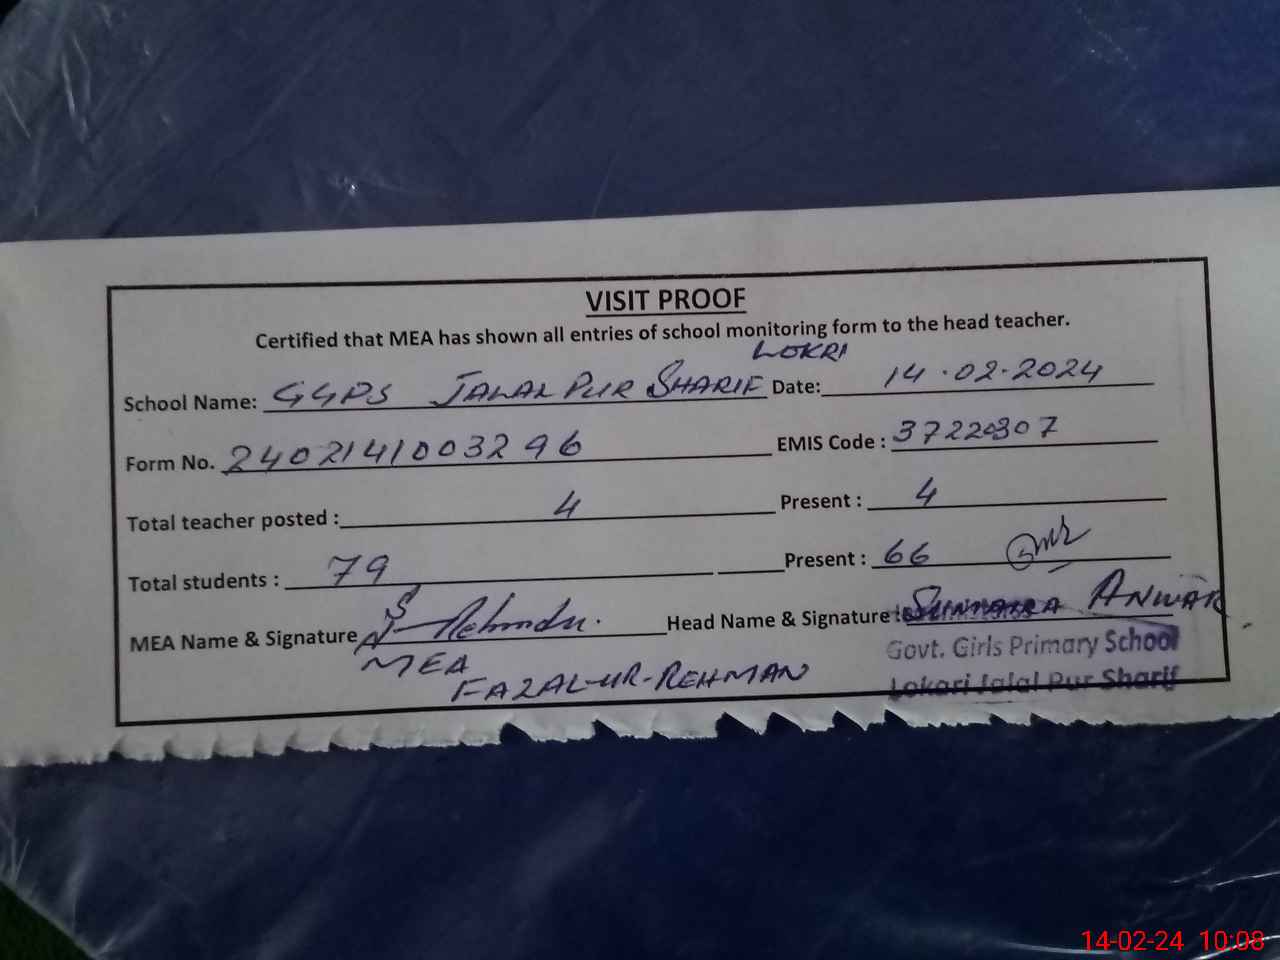 VISIT PROOF
Certified that MEA has shown all entries of school monitoring form to the head teacher.
LOKRI
School Name: GGPS JALAL PUR SHARIF Date: 14.02.2024
Form No. 2402141003296 EMIS Code : 37220307
Total teacher posted : 4 Present : 4
Total students : 79 Present : 66
MEA Name & Signature Head Name & Signature : ANWAR
Govt. Girls Primary School
MEA
FAZAL-UR-REHMAN
Lokari Jalal Pur Sharif
14-02-24 10:08